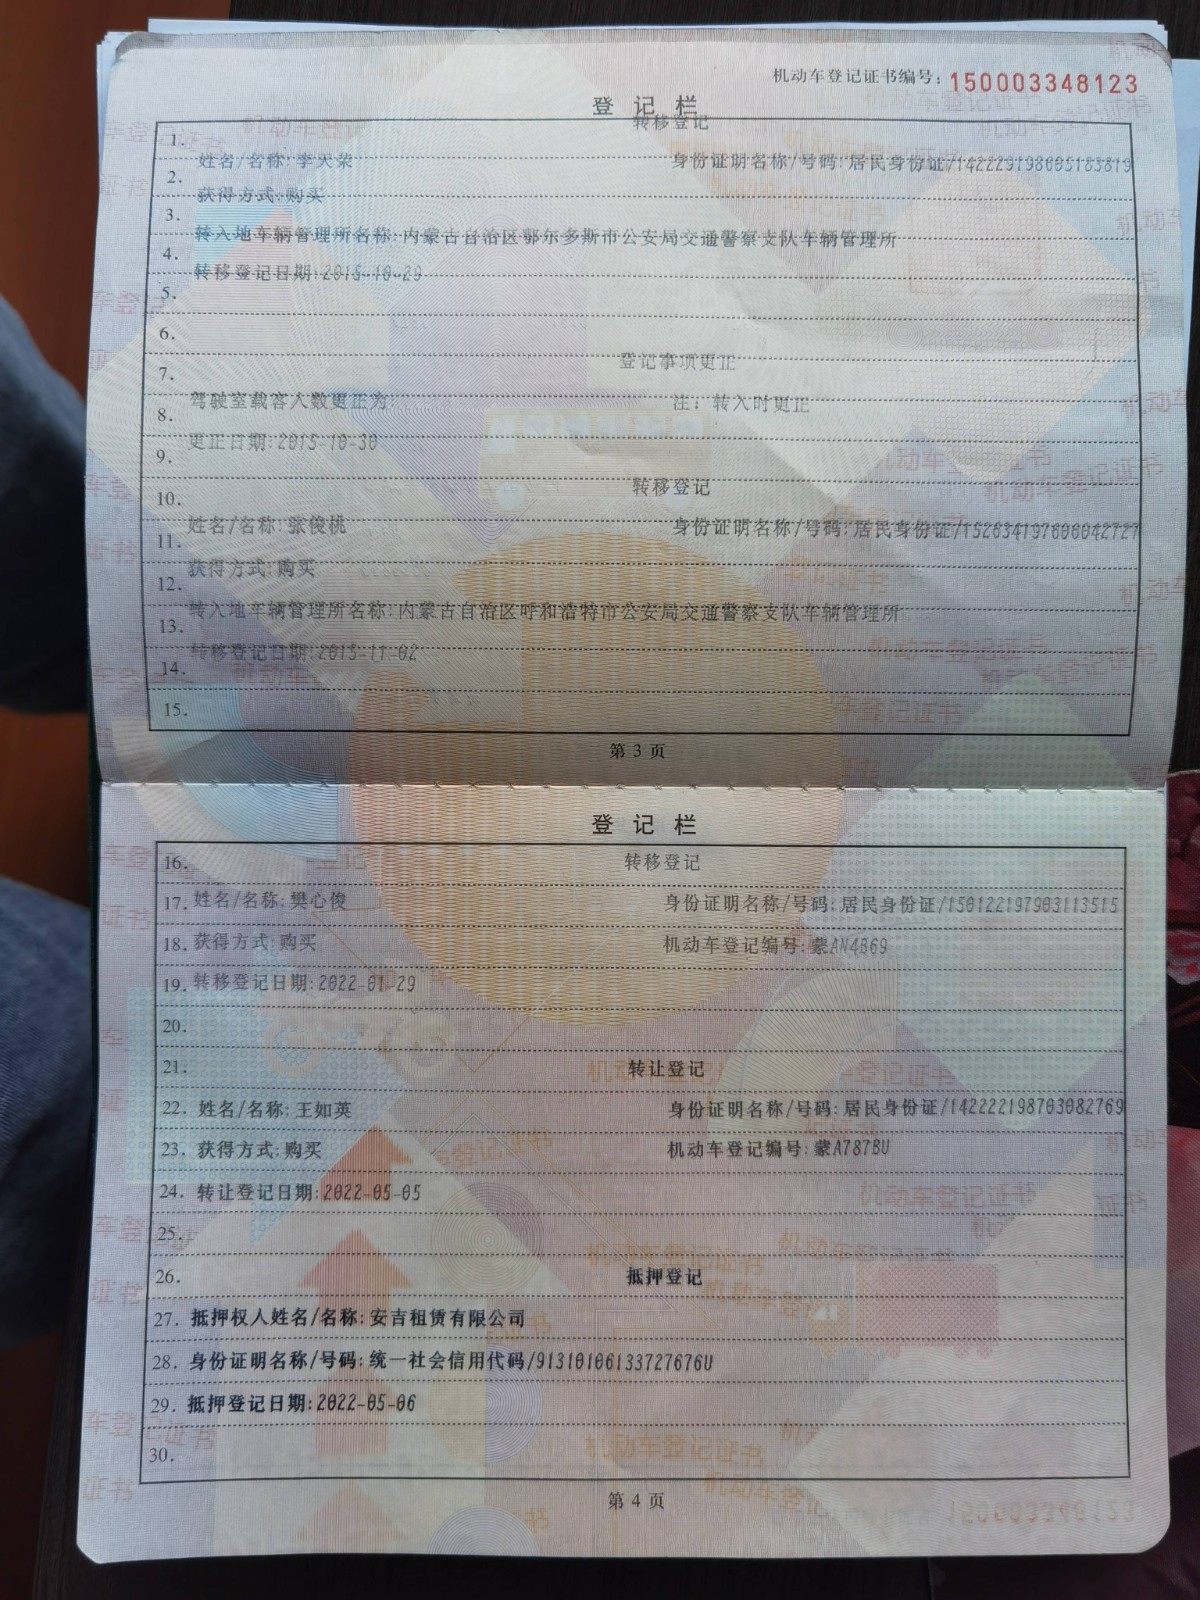 机动车登记证书编号：150003348123
登 记 栏
1. 转移登记
2. 姓名/名称:李天荣 身份证明名称/号码:居民身份证/142229198605183819
3. 获得方式:购买
4. 转入地车辆管理所名称:内蒙古自治区鄂尔多斯市公安局交通警察支队车辆管理所
5. 转移登记日期:2015-10-29
6.
7. 登记事项更正
8. 驾驶室载客人数更正为: 注：转入时更正
9. 更正日期:2015-10-30
10. 转移登记
11. 姓名/名称:张俊桃 身份证明名称/号码:居民身份证/152634197606042727
12. 获得方式:购买
13. 转入地车辆管理所名称:内蒙古自治区呼和浩特市公安局交通警察支队车辆管理所
14. 转移登记日期:2015-11-02
15.
第 3 页
登 记 栏
16. 转移登记
17. 姓名/名称:樊心俊 身份证明名称/号码:居民身份证/150122197903113515
18. 获得方式:购买 机动车登记编号:蒙AN4B69
19. 转移登记日期:2022-01-29
20.
21. 转让登记
22. 姓名/名称:王如英 身份证明名称/号码:居民身份证/142222198703082769
23. 获得方式:购买 机动车登记编号:蒙A787BU
24. 转让登记日期:2022-05-05
25.
26. 抵押登记
27. 抵押权人姓名/名称:安吉租赁有限公司
28. 身份证明名称/号码:统一社会信用代码/91310106133727676U
29. 抵押登记日期:2022-05-06
30.
第 4 页